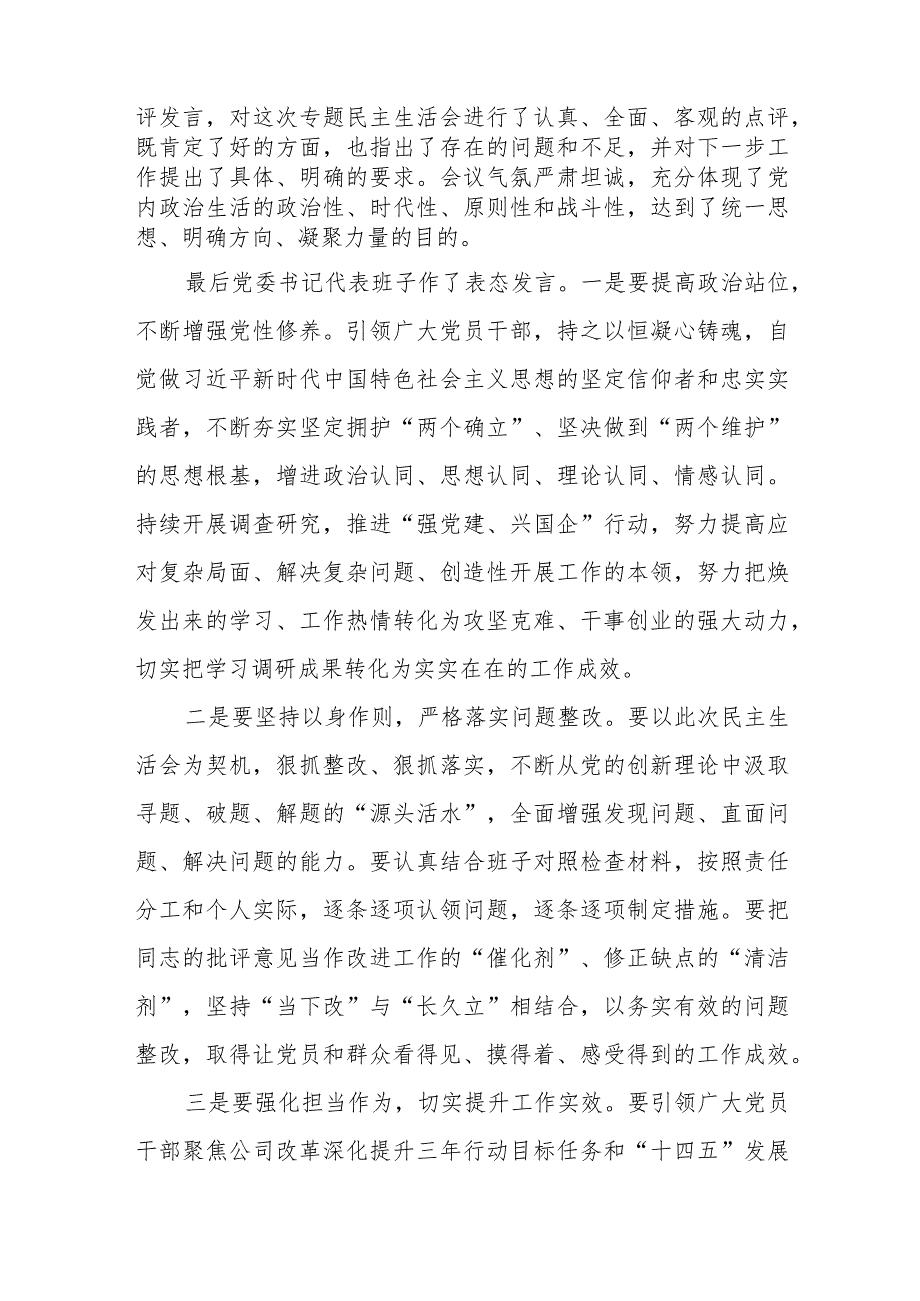 评发言，对这次专题民主生活会进行了认真、全面、客观的点评，
既肯定了好的方面，也指出了存在的问题和不足，并对下一步工
作提出了具体、明确的要求。会议气氛严肃坦诚，充分体现了党
内政治生活的政治性、时代性、原则性和战斗性，达到了统一思
想、明确方向、凝聚力量的目的。
最后党委书记代表班子作了表态发言。一是要提高政治站位，
不断增强党性修养。引领广大党员干部，持之以恒凝心铸魂，自
觉做习近平新时代中国特色社会主义思想的坚定信仰者和忠实实
践者，不断夯实坚定拥护“两个确立”、坚决做到“两个维护”
的思想根基，增进政治认同、思想认同、理论认同、情感认同。
持续开展调查研究，推进“强党建、兴国企”行动，努力提高应
对复杂局面、解决复杂问题、创造性开展工作的本领，努力把焕
发出来的学习、工作热情转化为攻坚克难、干事创业的强大动力，
切实把学习调研成果转化为实实在在的工作成效。
二是要坚持以身作则，严格落实问题整改。要以此次民主生
活会为契机，狠抓整改、狠抓落实，不断从党的创新理论中汲取
寻题、破题、解题的“源头活水”，全面增强发现问题、直面问
题、解决问题的能力。要认真结合班子对照检查材料，按照责任
分工和个人实际，逐条逐项认领问题，逐条逐项制定措施。要把
同志的批评意见当作改进工作的“催化剂”、修正缺点的“清洁
剂”，坚持“当下改”与“长久立”相结合，以务实有效的问题
整改，取得让党员和群众看得见、摸得着、感受得到的工作成效。
三是要强化担当作为，切实提升工作实效。要引领广大党员
干部聚焦公司改革深化提升三年行动目标任务和“十四五”发展